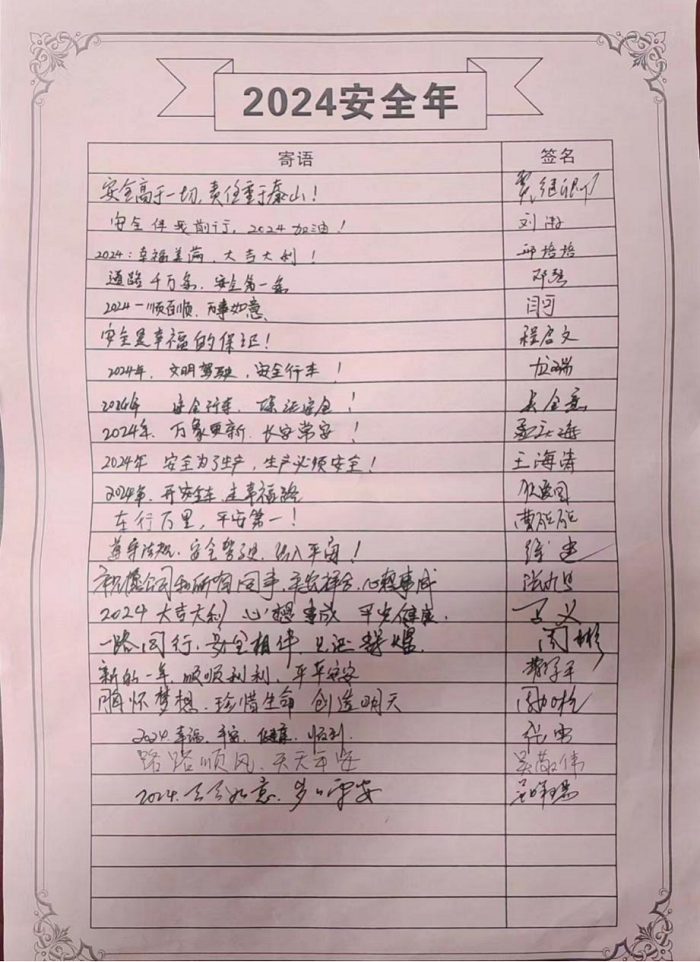 2024安全年
寄语 签名
安全高于一切,责任重于泰山!
安全伴我前行,2024加油! 刘
2024:幸福美满、大吉大利! 邱培培
道路千万条,安全第一条 邓
2024一顺百顺,万事如意 闫珂
安全是幸福的保证! 程启文
2024年,文明驾驶,安全行车!
2024年 安全行车,保证安全!
2024年,万象更新,长安常安!
2024年 安全为了生产,生产必须安全! 王海涛
2024年,开安全车,走幸福路
车行万里,平安第一! 曹
遵守法规,安全驾驶,出入平安!
祝愿公司和所有同事,幸安祥合,心想事成
2024 大吉大利 心想事成 平安健康. 马义
一路同行,安全相伴,见证辉煌. 闵彬
新的一年,顺顺利利,平平安安
胸怀梦想,珍惜生命 创造明天
2024.幸福、平安、健康、顺利.
路路顺风,天天平安 吴敬伟
2024.天天如意,岁岁平安